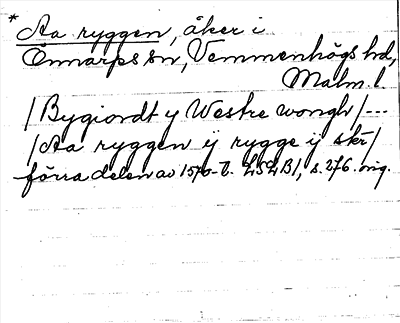 * Aa ryggen, åker i
Önnarps sn, Vemmenhögs hd,
Malm. l.
/Bygiordt y Westre wongh/---
/Aa ryggen ÿ rygge ÿ skr/
förra delen av 1570-t. LSLB/, s. 276. orig.